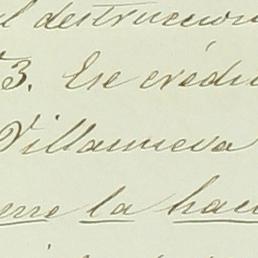 destruccion
3. Ese crédi
Villanueva
erre la hac